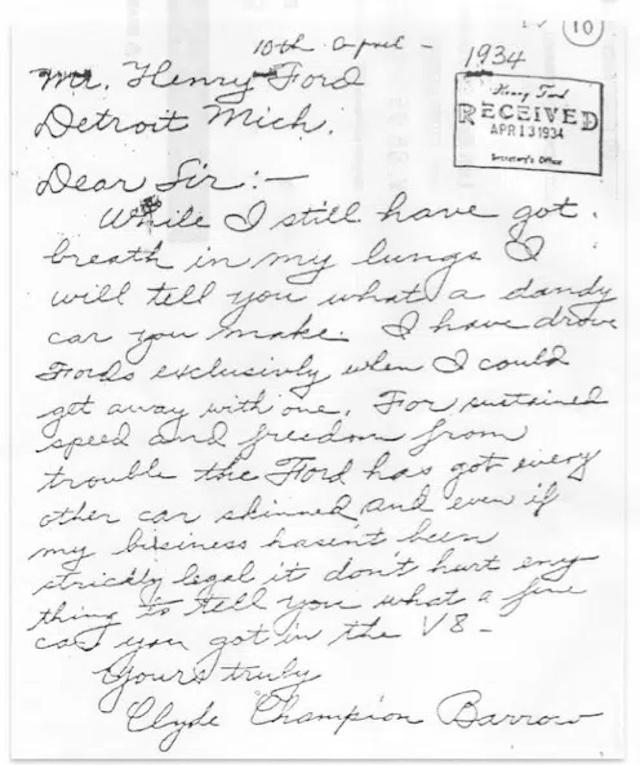 10
10th April - 1934
Mr. Henry Ford
Detroit Mich.
Henry Ford
RECEIVED
APR 13 1934
Secretary's Office
Dear Sir:-
While I still have got
breath in my lungs I
will tell you what a dandy
car you make. I have drove
Fords exclusivly when I could
get away with one. For sustained
speed and freedom from
trouble the Ford has got every
other car skinned and even if
my buisness hasen't been
strickly legal it don't hurt eny
thing to tell you what a fine
car you got in the V8-
Yours truly
Clyde Champion Barrow